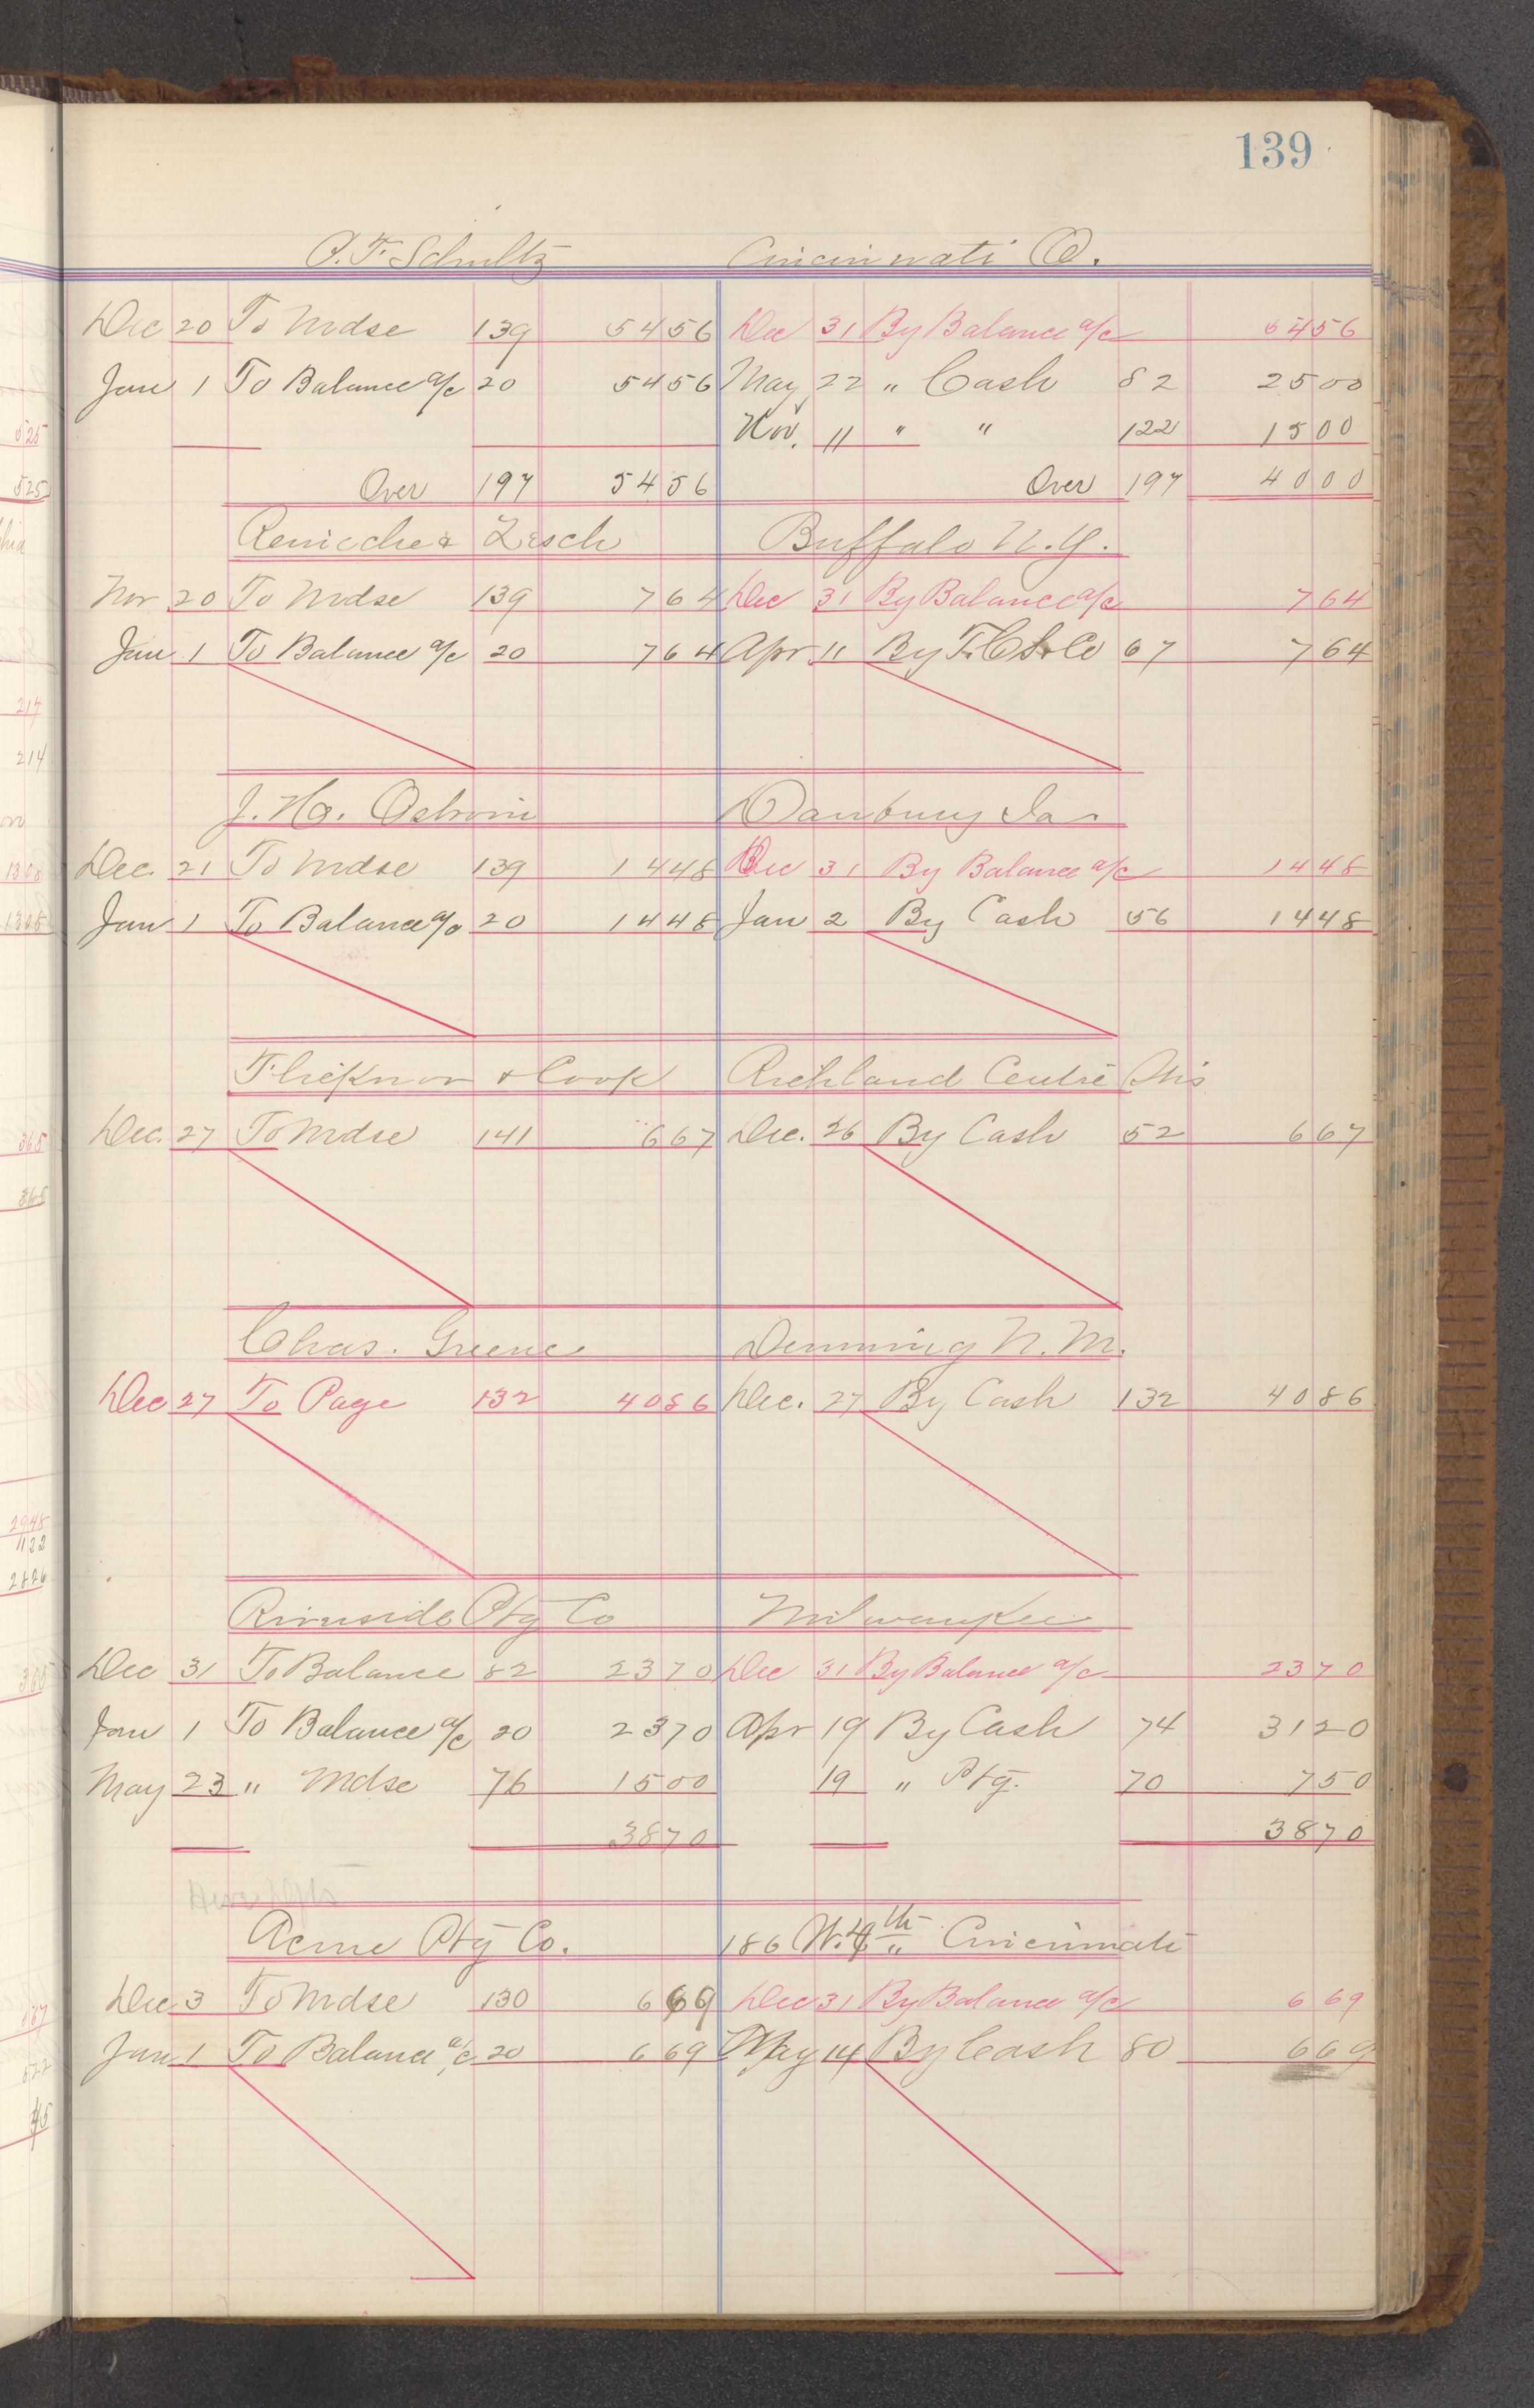 139
O. F. Schultz Cincinnati O.
Dec 20 To Mdse 139 54 56 Dec 31 By Balance a/c 54 56
Jan 1 To Balance a/c 20 54 56 May 22 " Cash 82 25 00
Nov. 11 " " 122 15 00
Over 197 54 56 Over 197 40 00
& Zesch Buffalo N.Y.
Nov 20 To Mdse 139 7 64 Dec 31 By Balance a/c 7 64
Jan 1 To Balance a/c 20 7 64 Apr 11 By 67 7 64
J. H. Danbury Ia
Dec. 21 To Mdse 139 14 48 Dec 31 By Balance a/c 14 48
Jan 1 To Balance a/c 20 14 48 Jan 2 By Cash 56 14 48
& Cook Richland Centre Wis
Dec. 27 To Mdse 141 6 67 Dec. 26 By Cash 52 6 67
Chas. Greene Demming N. M.
Dec 27 To Page 132 40 86 Dec. 27 By Cash 132 40 86
Riverside Ptg Co Milwaukee
Dec 31 To Balance 82 23 70 Dec 31 By Balance a/c 23 70
Jan 1 To Balance a/c 20 23 70 Apr 19 By Cash 74 31 20
May 23 " Mdse 76 15 00 19 " Ptg. 70 7 50
38 70 38 70
Acme Ptg Co. 186 W. 4th Cincinnati
Dec 3 To Mdse 130 6 69 Dec 31 By Balance a/c 6 69
Jan 1 To Balance a/c 20 6 69 May 14 By Cash 80 6 69